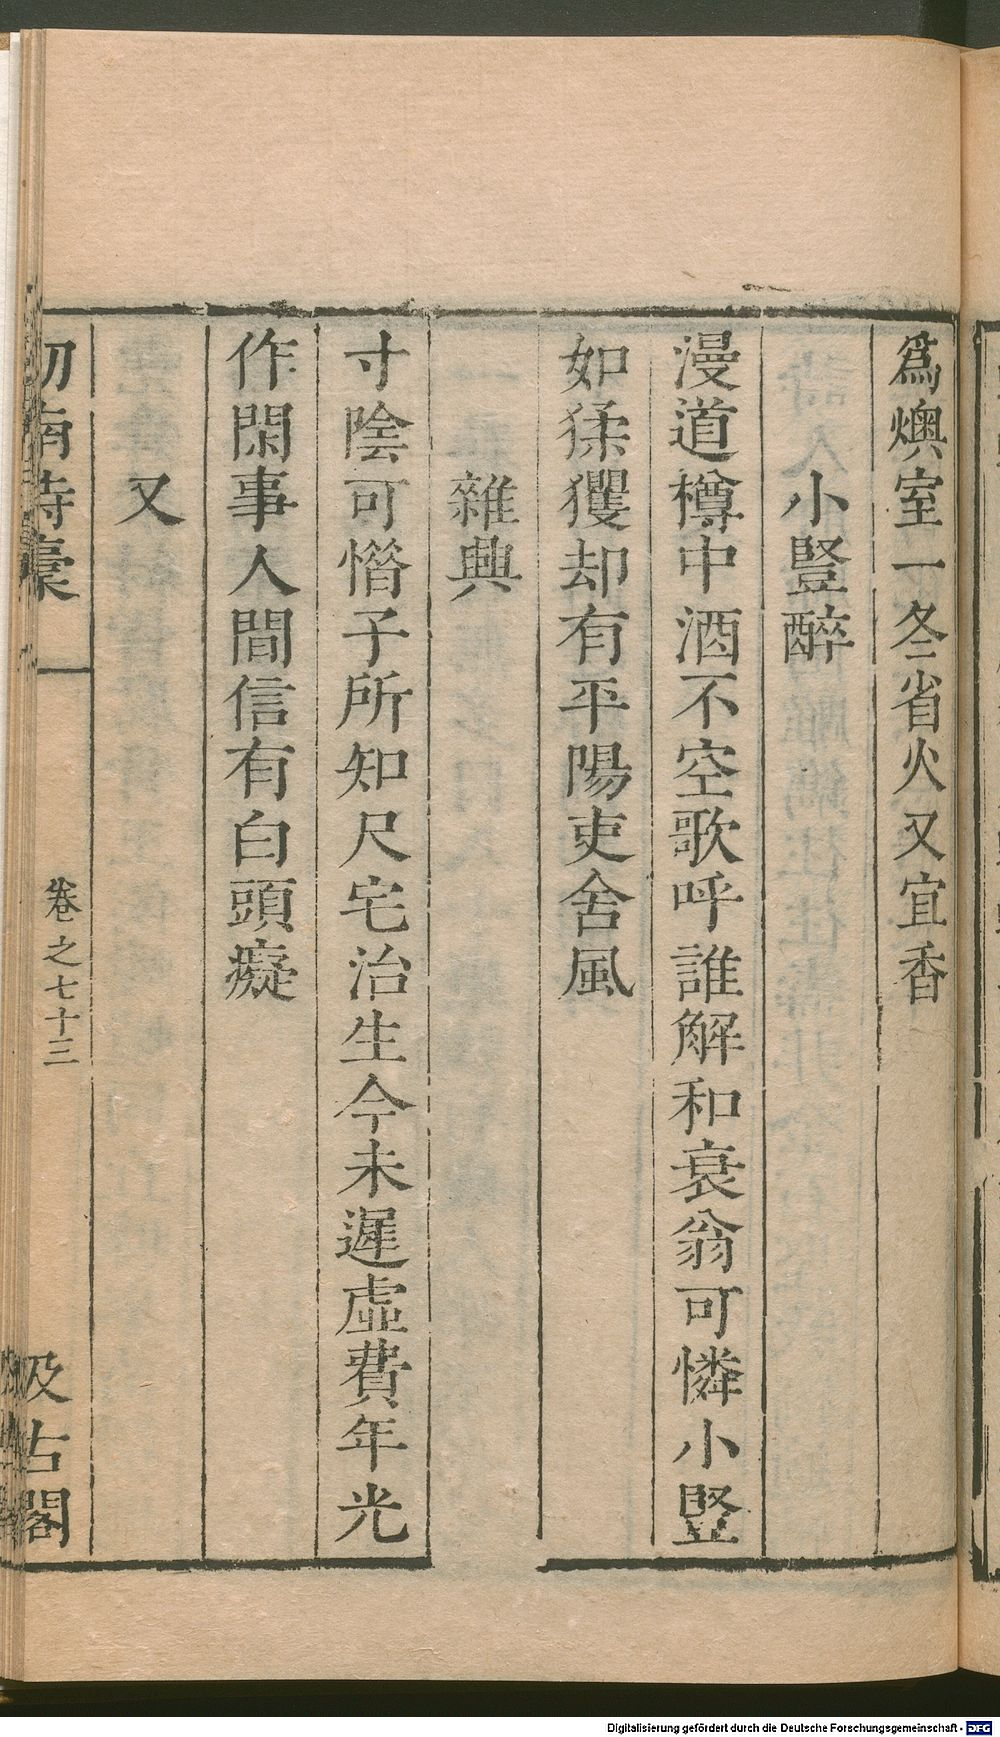 爲燠室一冬省火又宜香
小豎醉
漫道樽中酒不空歌呼誰解和衰翁可憐小豎
如猱玃却有平陽吏舍風
雜興
寸陰可惜子所知尺宅治生今未遲虛費年光
作閑事人間信有白頭癡
又
劍南詩稾
卷之七十三
汲古閣
Digitalisierung gefördert durch die Deutsche Forschungsgemeinschaft - DFG